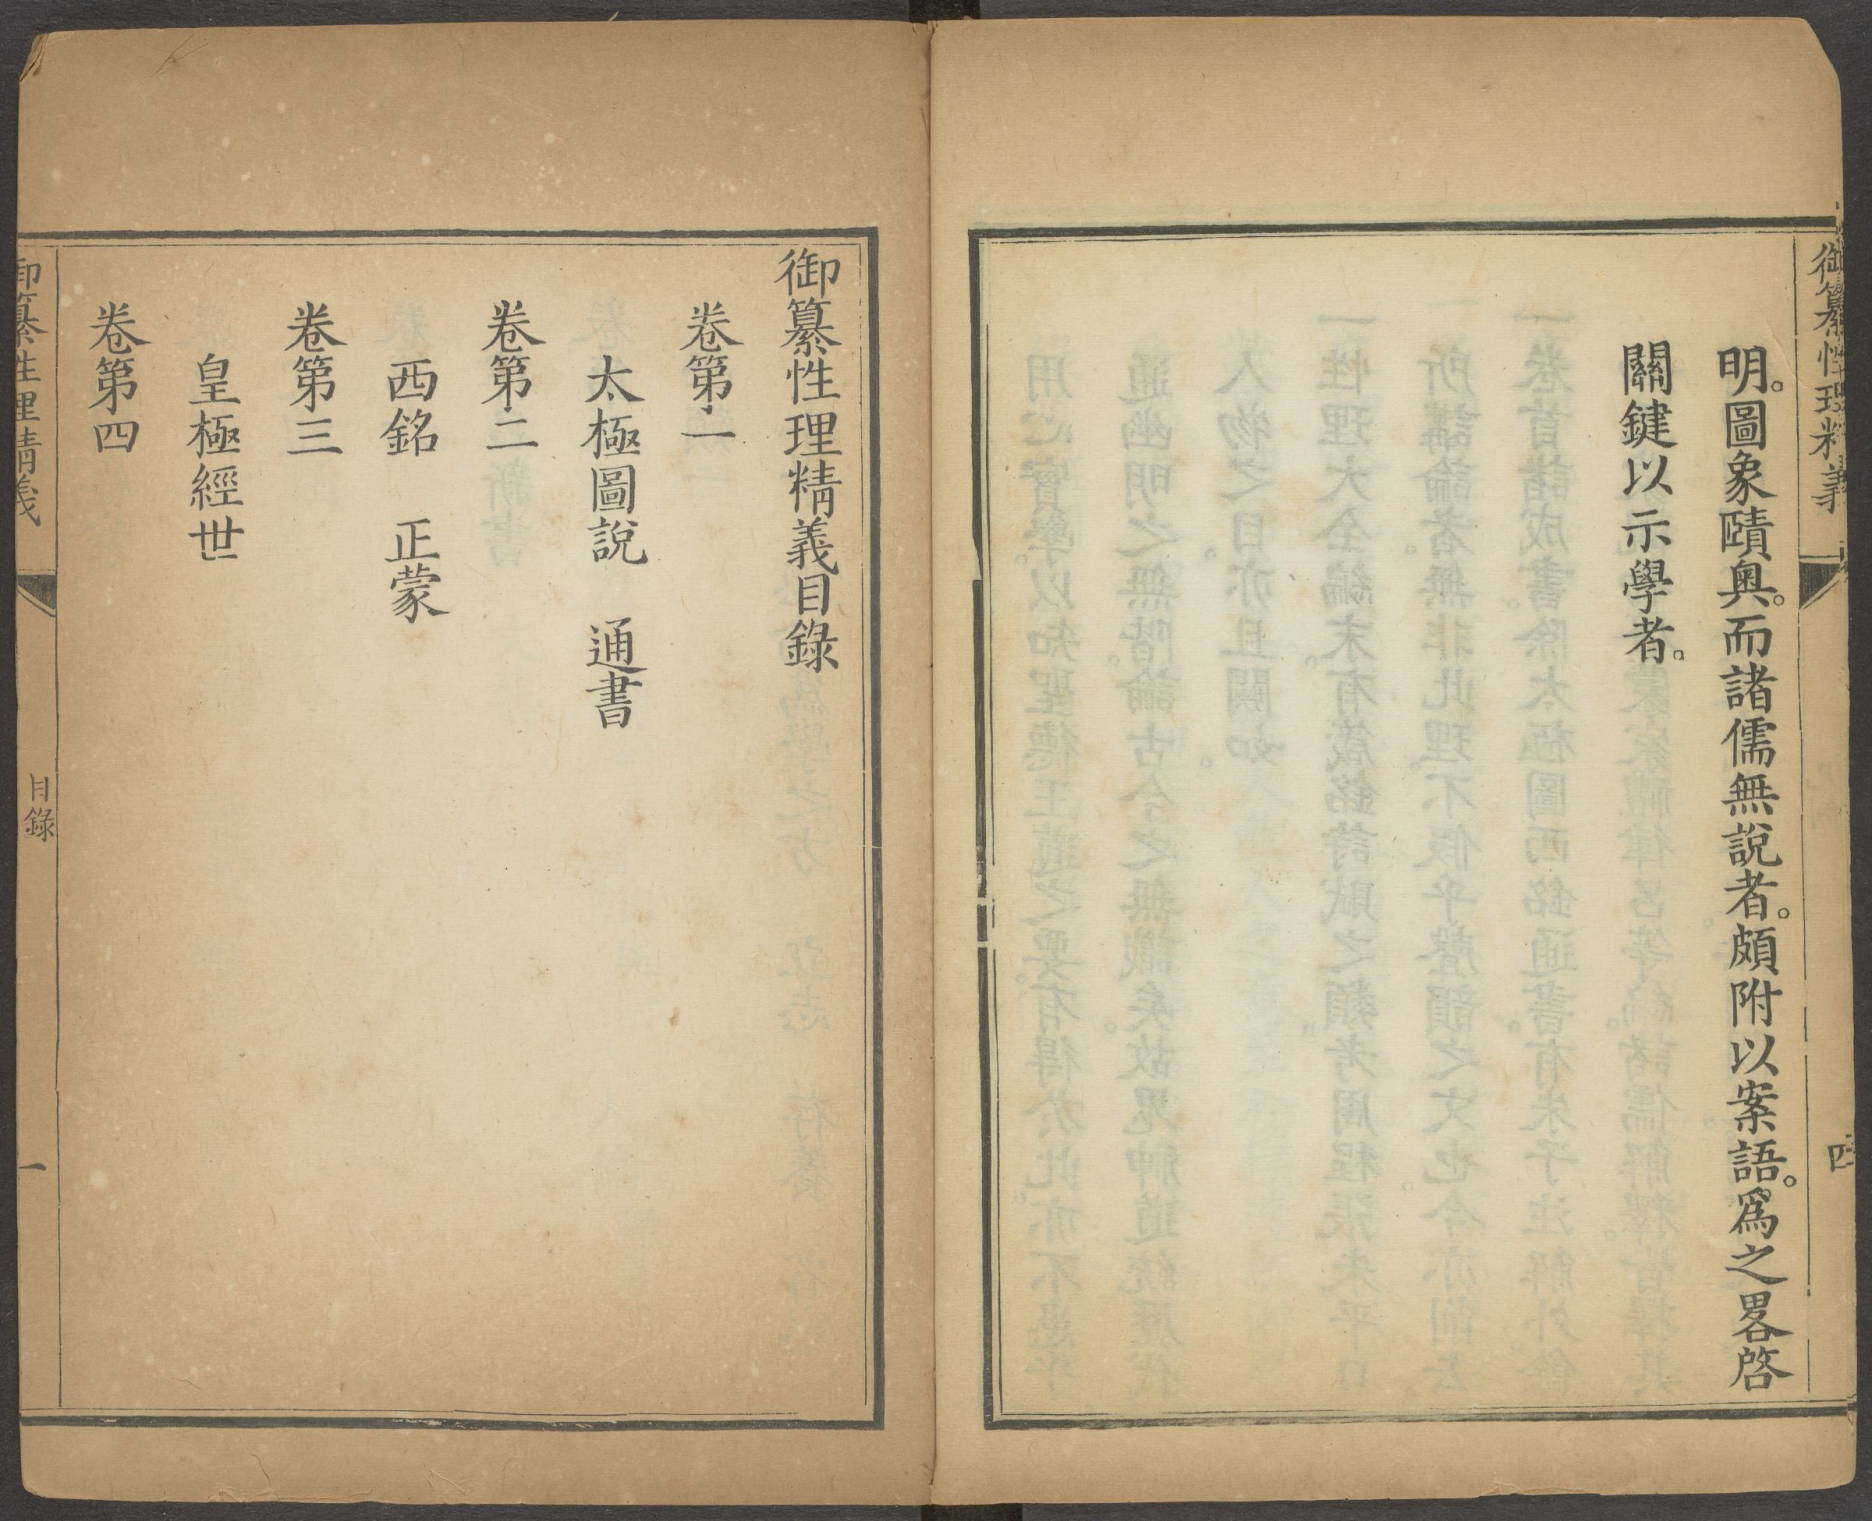 御纂性理精義
四
明。圖象賾奧。而諸儒無說者。頗附以案語。爲之畧啓
關鍵以示學者。
御纂性理精義目錄
卷第一
太極圖說　通書
卷第二
西銘　正蒙
卷第三
皇極經世
卷第四
御纂性理精義
目錄
一